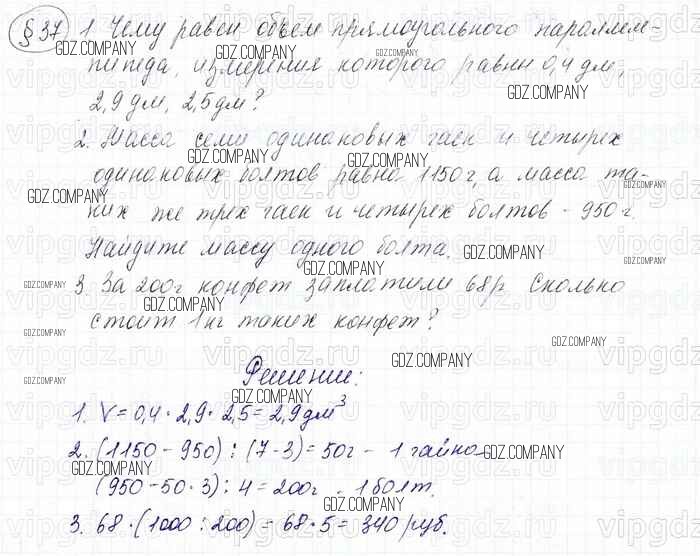 § 37 1. Чему равен объем прямоугольного параллеле-
пипеда, измерения которого равны 0,4 дм,
2,9 дм, 2,5 дм?
2. Масса семи одинаковых гаек и четырех
одинаковых болтов равна 1150 г, а масса та-
ких же трех гаек и четырех болтов - 950 г.
Найдите массу одного болта.
3. За 200 г конфет заплатили 68 р. Сколько
стоит 1 кг таких конфет?
Решение:
1. V = 0,4 · 2,9 · 2,5 = 2,9 дм³
2. (1150 - 950) : (7 - 3) = 50 г - 1 гайка
(950 - 50 · 3) : 4 = 200 г - 1 болт.
3. 68 · (1000 : 200) = 68 · 5 = 340 руб.
GDZ.COMPANY
vipgdz.ru